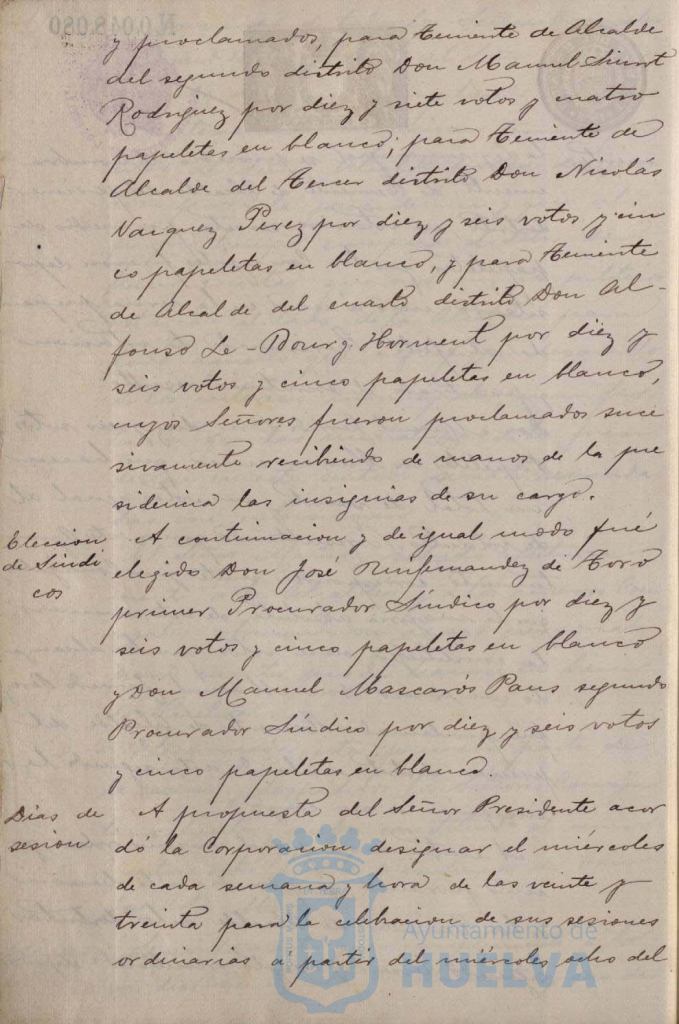 y proclamados, para Teniente de Alcalde
del segundo distrito Don Manuel Siurot
Rodriguez por diez y siete votos y cuatro
papeletas en blanco; para Teniente de
Alcalde del Tercer distrito Don Nicolás
Vazquez Perez por diez y seis votos y cin
co papeletas en blanco, y para Teniente
de Alcalde del cuarto distrito Don Al-
fonso Le-Bourg Horment por diez y
seis votos y cinco papeletas en blanco,
cuyos Señores fueron proclamados suce
sivamente recibiendo de manos de la pre
sidencia las insignias de su cargo.
Eleccion
de Sindi
cos
A continuacion y de igual modo fué
elegido Don José de Toro
primer Procurador Síndico por diez y
seis votos y cinco papeletas en blanco
y Don Manuel Mascarós Paus segundo
Procurador Síndico por diez y seis votos
y cinco papeletas en blanco.
Dias de
sesion
A propuesta del Señor Presidente acor
dó la Corporacion designar el miércoles
de cada semana y hora de las veinte y
treinta para la celebracion de sus sesiones
ordinarias a partir del miércoles ocho del
Ayuntamiento de
HUELVA